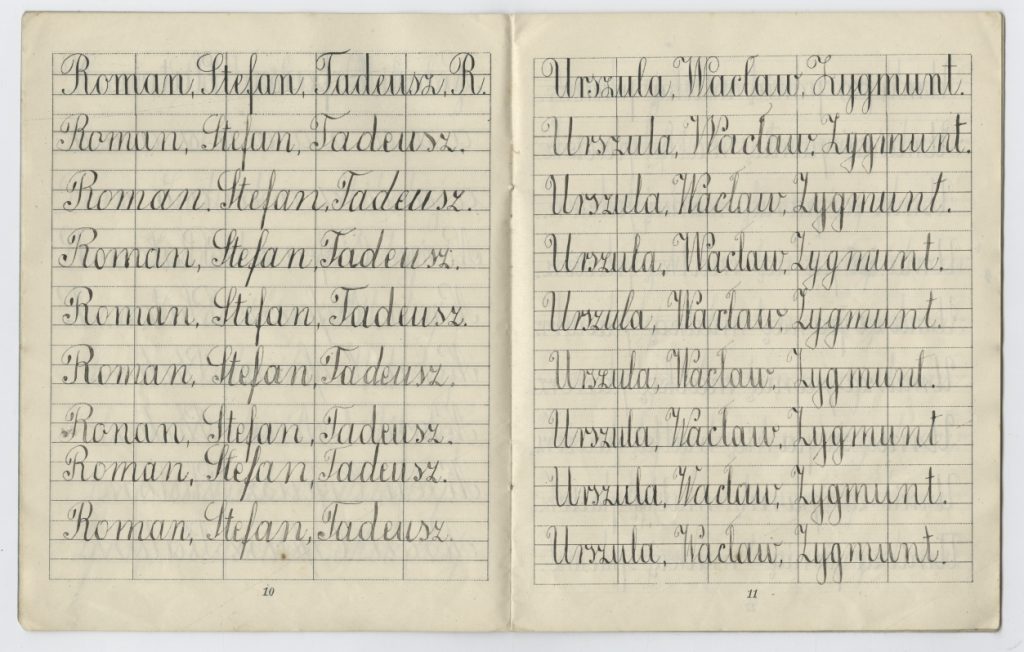 Roman, Stefan, Tadeusz, R.
Roman, Stefan, Tadeusz.
Roman. Stefan, Tadeusz.
Roman, Stefan, Tadeusz.
Roman, Stefan, Tadeusz.
Roman, Stefan, Tadeusz.
Ronan, Stefan, Tadeusz.
Roman, Stefan, Tadeusz.
Roman, Stefan, Tadeusz.
10
Urszula, Wacław, Zygmunt.
Urszula, Wacław, Zygmunt.
Urszula, Wacław, Zygmunt.
Urszula, Wacław, Zygmunt.
Urszula, Wacław, Zygmunt.
Urszula, Wacław, Zygmunt.
Urszula, Wacław, Zygmunt
Urszula, Wacław, Zygmunt.
Urszula, Wacław, Zygmunt.
11